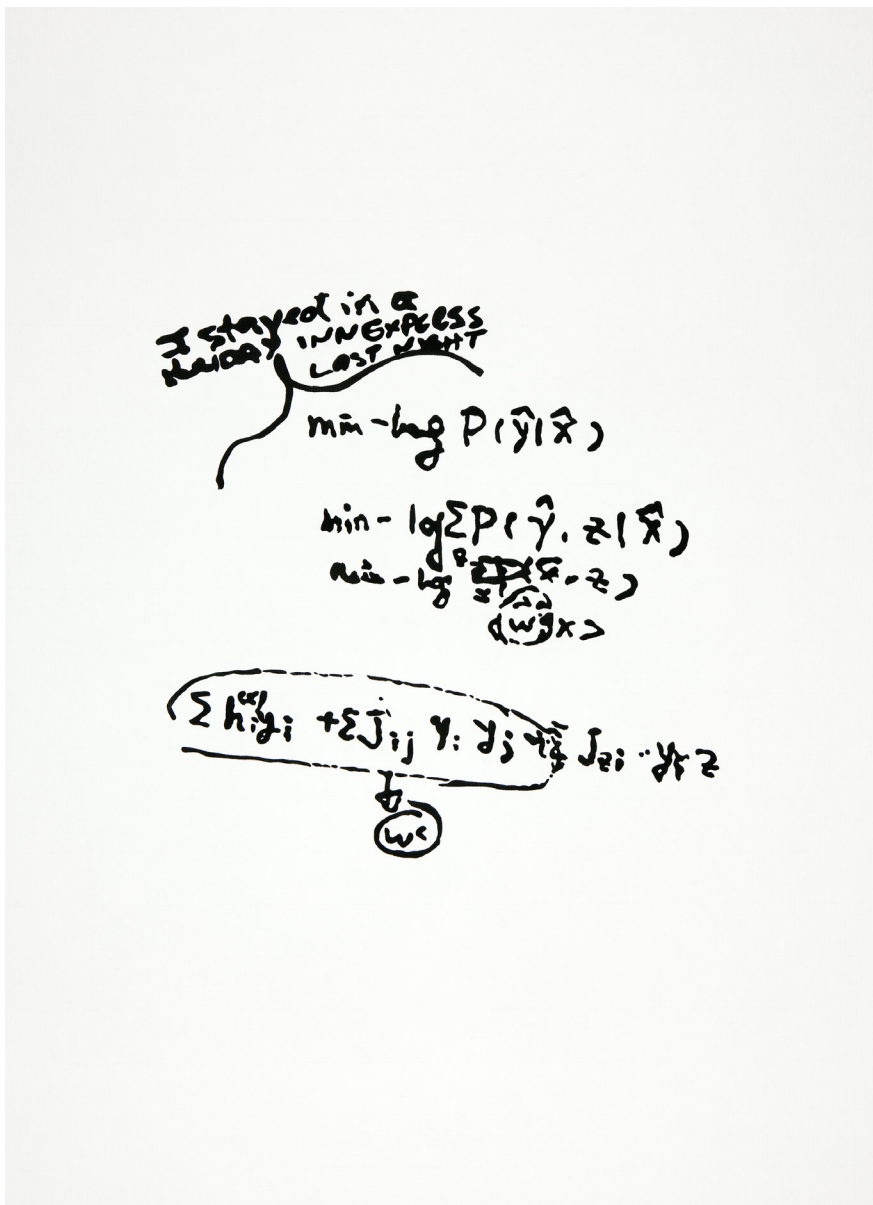 I stayed in a
HOLIDAY INN EXPRESS
LAST NIGHT
min - log P(ŷ|x̂)
min - log Σ P(ŷ, z|x̂)
z
min - log , z)
z
w x>
Σ hᵢ⁽ˣ⁾yᵢ + Σ Jᵢⱼ yᵢ yⱼ + Jzᵢ · yᵢ z
w